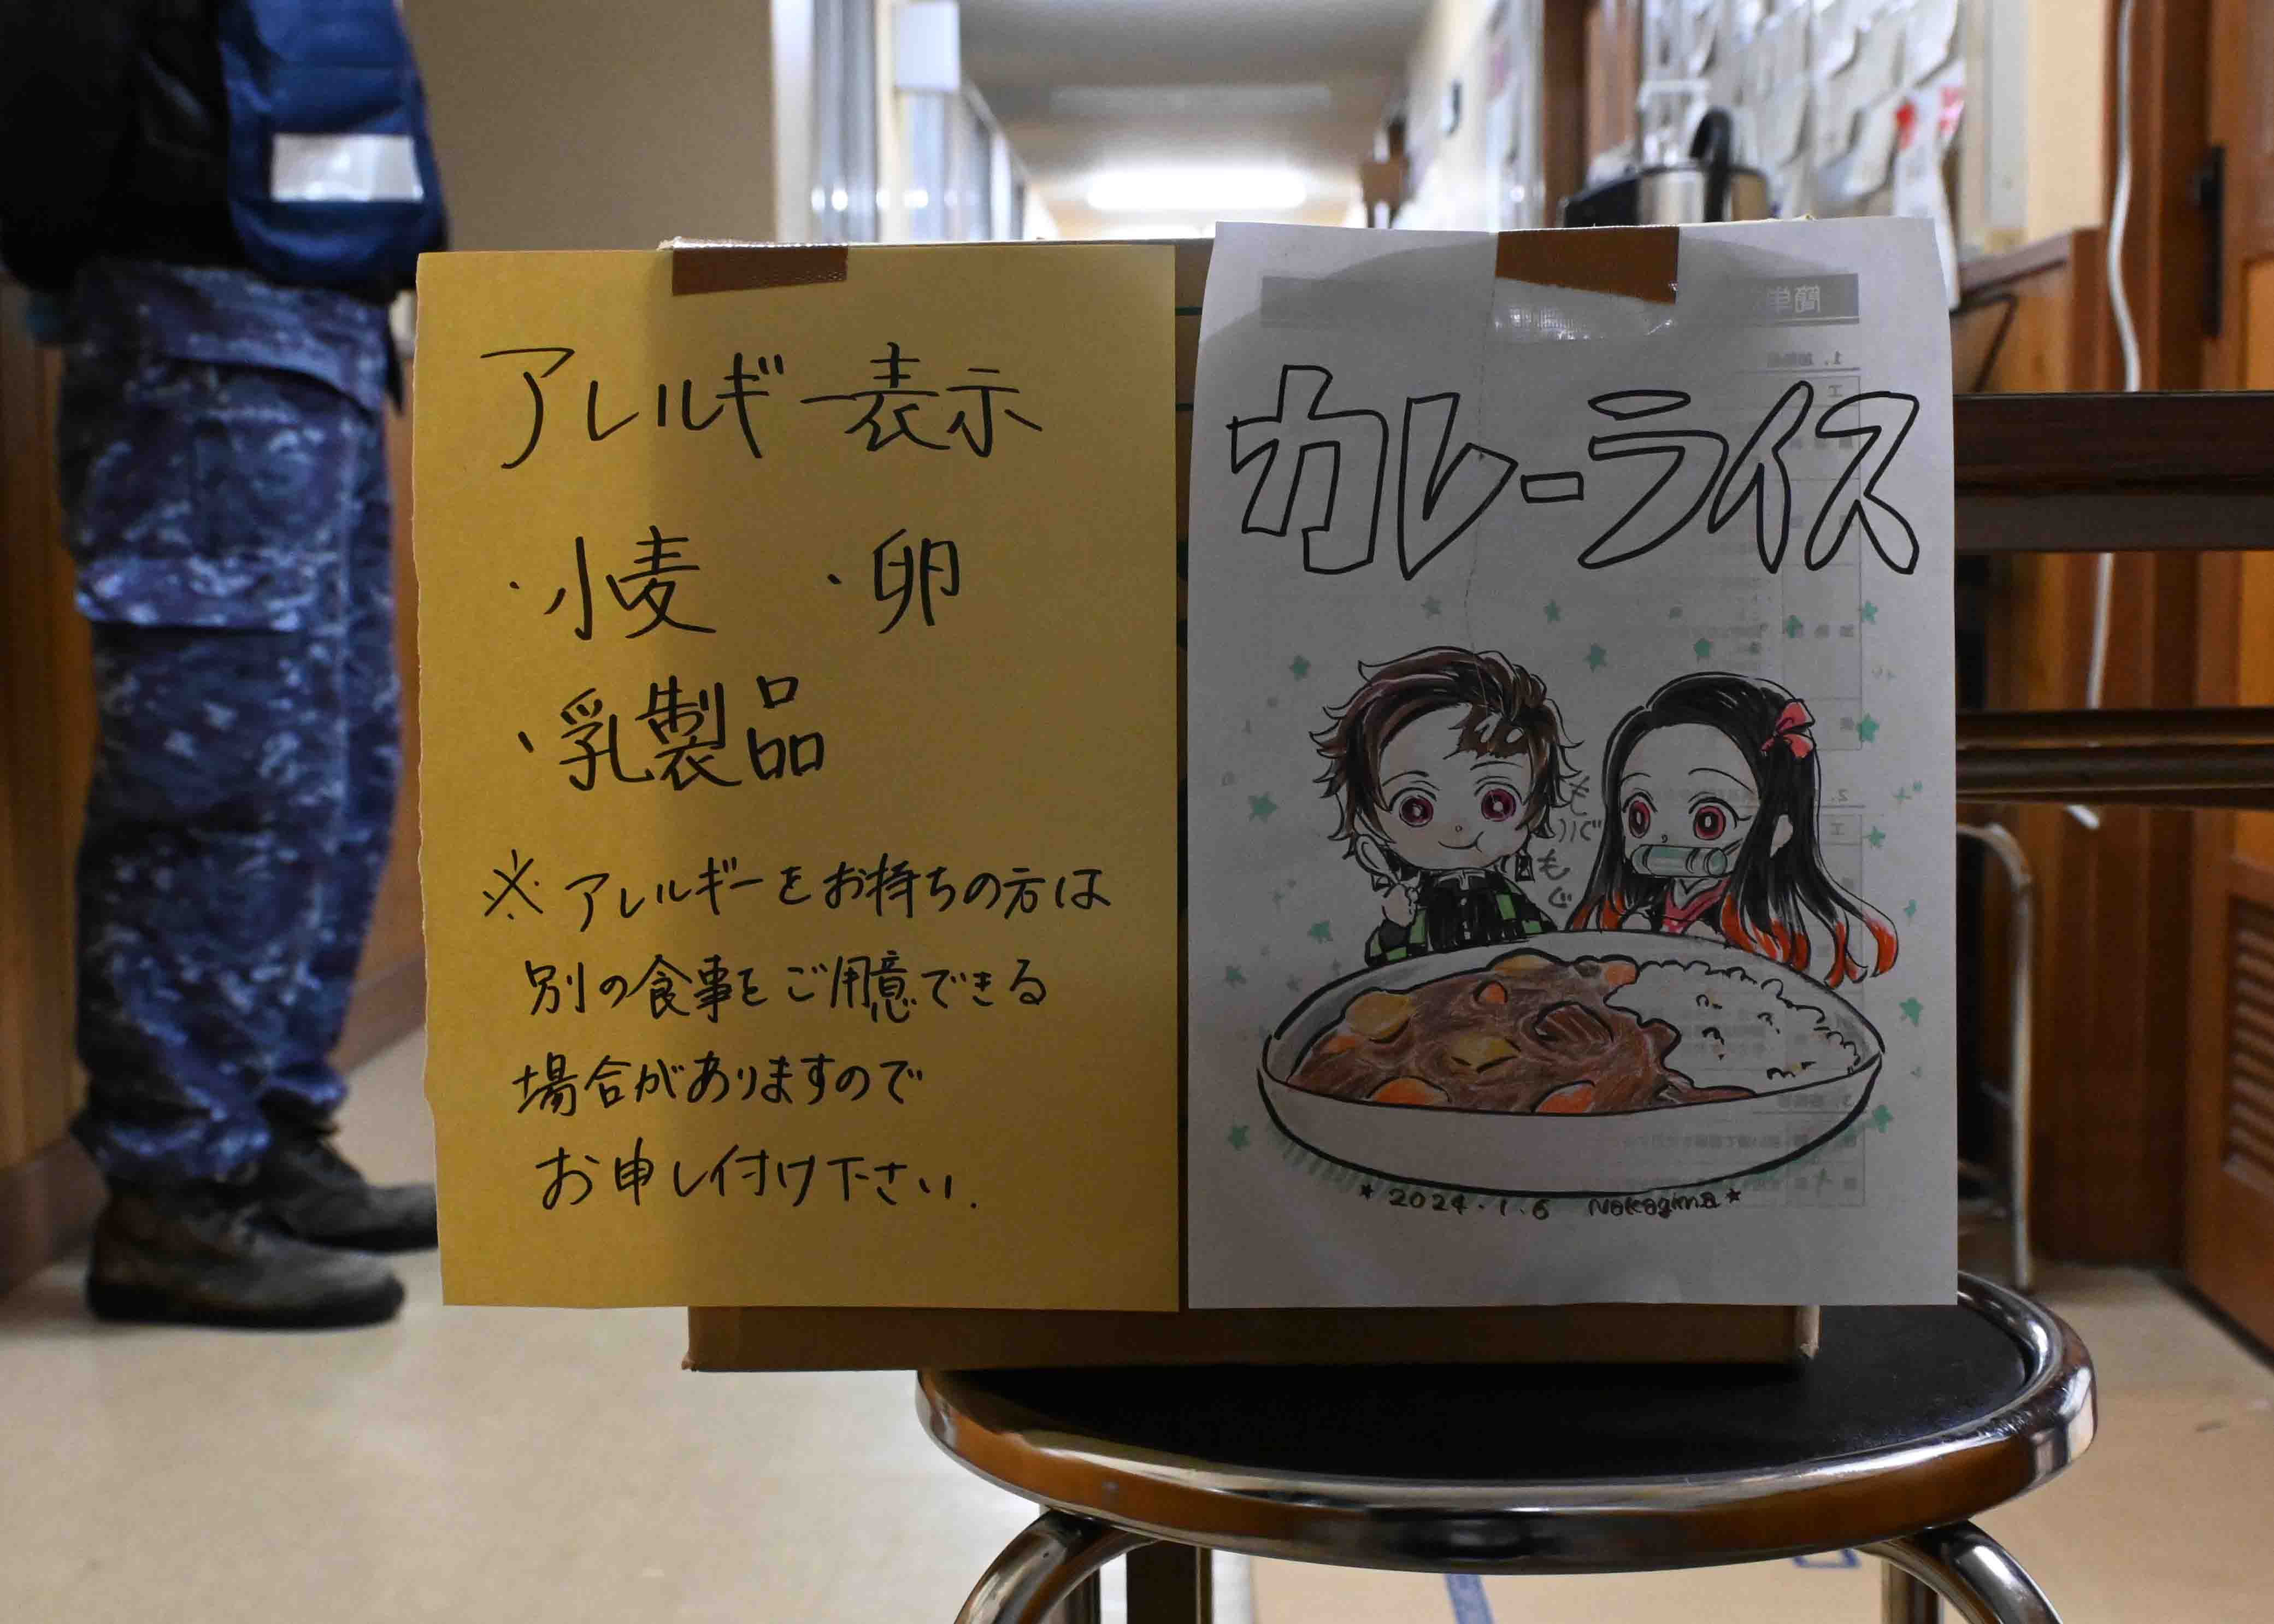 アレルギー表示
・小麦 ・卵
・乳製品
※アレルギーをお持ちの方は
別の食事をご用意できる
場合がありますので
お申し付け下さい.
カレーライス
もぐ
もぐ
★2024.1.6 Nakagima★